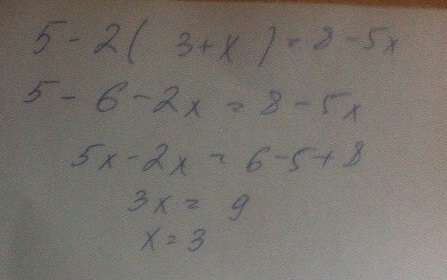 5 - 2( 3+x ) = 8 - 5x
5 - 6 - 2x = 8 - 5x
5x - 2x = 6 - 5 + 8
3x = 9
x = 3